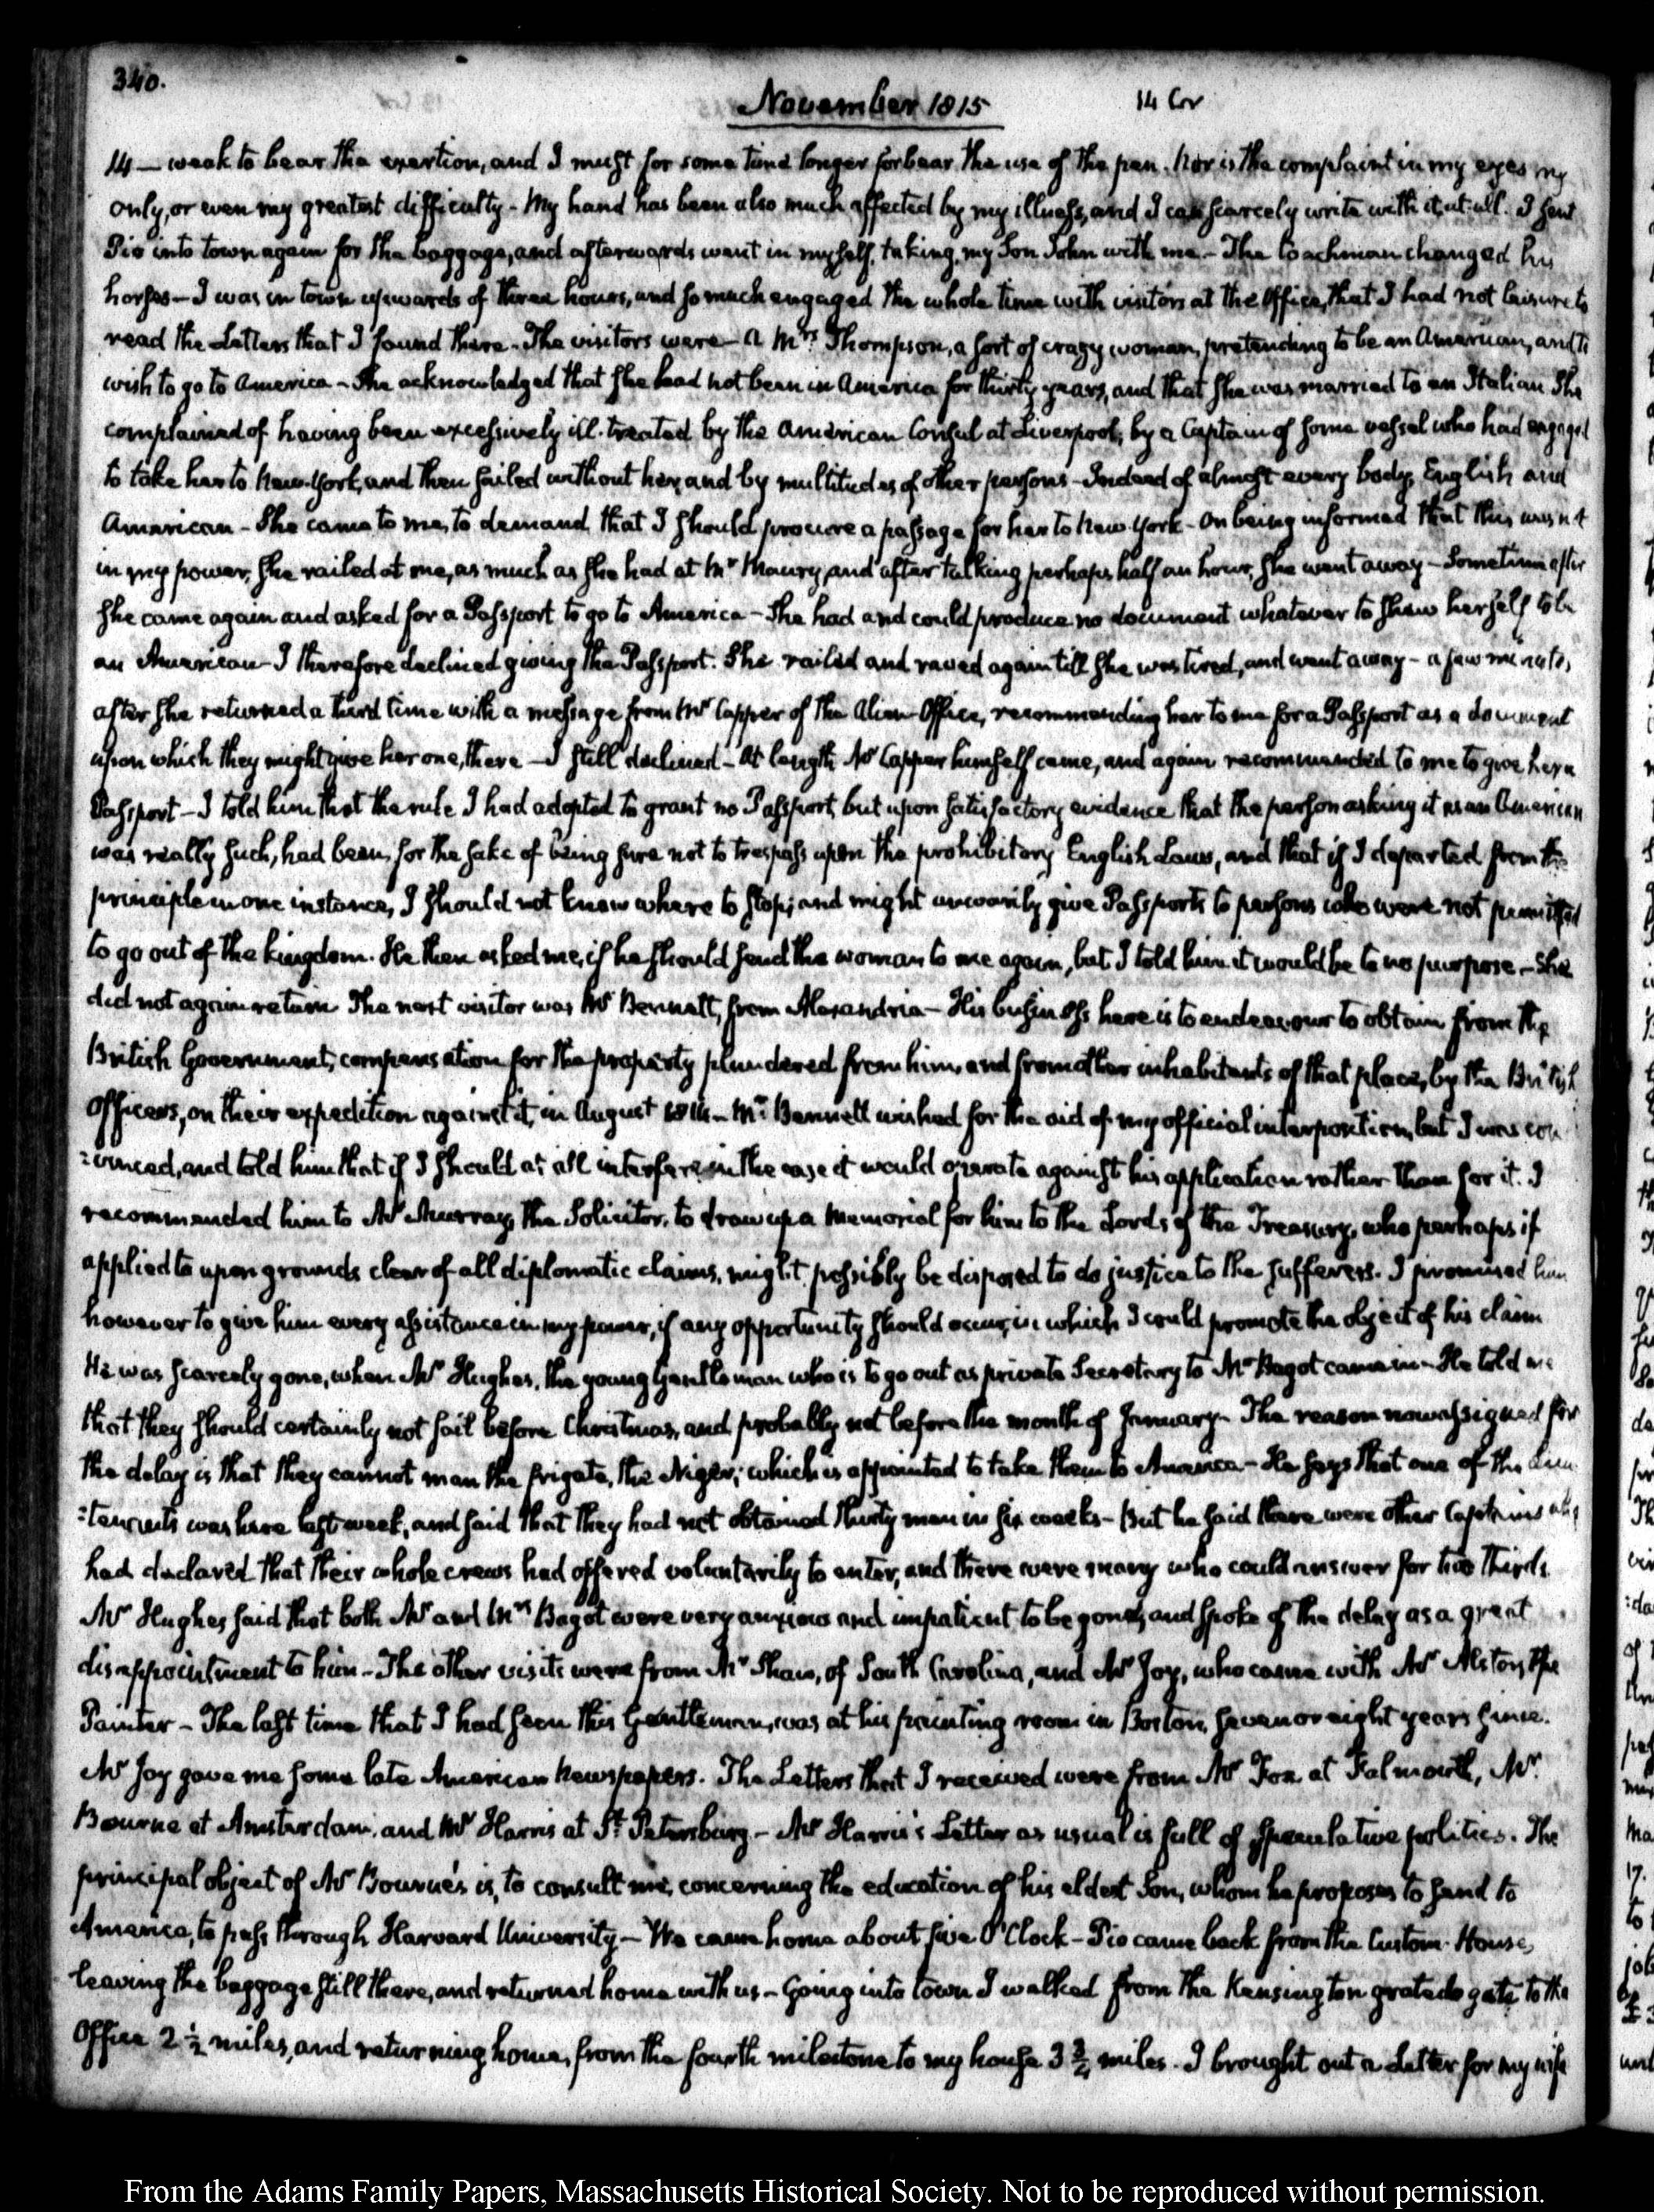 340.
November 1815
14 Cor
14 — weak to bear the exertion, and I must for some time longer forbear the use of the pen. Nor is the complaint in my eyes my
only, or even my greatest difficulty - My hand has been also much affected by my illness, and I can scarcely write with it, at all. I sent
Pio into town again for the baggage, and afterwards went in myself, taking, my Son John with me. - The Coachman changed his
horses - I was in town upwards of three hours, and so much engaged the whole time with visitors at the Office, that I had not leisure to
read the Letters that I found there. The visitors were - a Mrs. Thompson, a sort of crazy woman, pretending to be an American, and to
wish to go to America - She acknowledged that she had not been in America for thirty years, and that she was married to an Italian She
complained of having been excessively ill-treated by the American Consul at Liverpool, by a Captain of some vessel who had engaged
to take her to New-York, and then sailed without her, and by multitudes of other persons - Indeed of almost every body, English and
American - She came to me, to demand, that I should procure a passage for her to New-York - On being informed that this was not
in my power, she railed at me, as much as she had at Mr Maury, and after talking perhaps half an hour, she went away - Sometime after
she came again and asked for a Passport to go to America - She had and could produce no document whatever to shew herself to be
an American - I therefore declined giving the Passport. She railed and raved again till she was tired, and went away - a few minutes,
after she returned a third time with a message from Mr Capper of the Alien-Office, recommending her to me for a Passport as a document
upon which they might give her one, there — I still declined - At length Mr Capper himself came, and again recommended to me to give her a
Passport - I told him that the rule I had adopted to grant no Passport, but upon satisfactory evidence that the person asking it as an American
was really such, had been, for the sake of being sure not to trespass upon the prohibitory English Laws, and that if I departed from the
principle in one instance, I should not know where to stop; and might unwarily give Passports to persons who were not permitted
to go out of the kingdom. He then asked me, if he should send the woman to me again, but I told him it would be to no purpose. - She
did not again return. The next visitor was Mr Bennett, from Alexandria - His business here is to endeavour to obtain from the
British Government, compensation for the property plundered from him, and from other inhabitants of that place, by the British
Officers, on their expedition against it, in August 1814 - Mr. Bennett wished for the aid of my official interposition, but I was con
:vinced, and told him that if I should at all interfere in the case it would operate against his application rather than for it. I
recommended him to Mr Murray, the Solicitor, to draw up a Memorial for him to the Lords of the Treasury, who perhaps if
applied to upon grounds clear of all diplomatic claims, might possibly be disposed to do justice to the sufferers. I promised him
however to give him every assistance in my power, if any opportunity should occur, in which I could promote the object of his claim
He was scarcely gone, when Mr Hughes, the young Gentleman who is to go out as private Secretary to Mr Bagot came in - He told me
that they should certainly not sail before Christmas, and probably not before the month of January - The reason now assigned for
the delay is that they cannot man the frigate, the Niger, which is appointed to take them to America - He says that one of the Lieu
:tenants was here last week, and said that they had not obtained thirty men in six weeks - But he said there were other Captains who
had declared that their whole crews had offered voluntarily to enter, and there were many who could answer for two thirds.
Mr Hughes said that both Mr and Mrs Bagot were very anxious and impatient to be gone, and spoke of the delay as a great
disappointment to him - The other visits were from Mr Shaw, of South Carolina, and Mr Joy, who came with Mr Alston, the
Painter - The last time that I had seen this Gentleman, was at his painting room in Boston, seven or eight years since.
Mr Joy gave me some late American Newspapers. The Letters that I received were from Mr Fox at Falmouth, Mr.
Bourne at Amsterdam, and Mr Harris at St. Petersburg. - Mr Harris's Letter as usual is full of speculative politics. The
principal object of Mr Bourne's is, to consult me, concerning the education of his eldest Son, whom he proposes to send to
America, to pass through Harvard University - We came home about five O'Clock - Pio came back from the Custom-House,
leaving the baggage still there, and returned home with us - Going into town I walked from the Kensington grated gate to the
Office 2 1/2 miles, and returning home, from the fourth milestone to my house 3 3/4 miles. I brought out a Letter for my wife
From the Adams Family Papers, Massachusetts Historical Society. Not to be reproduced without permission.